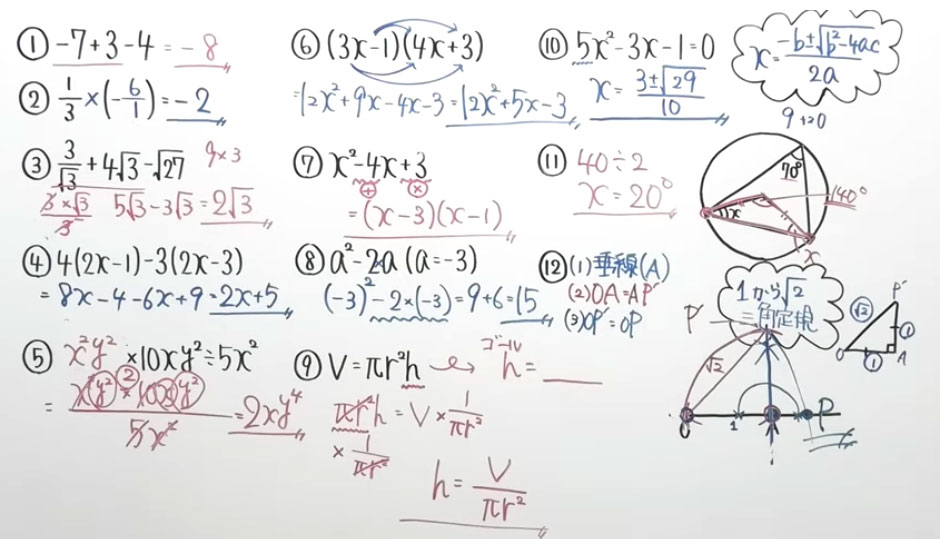 ① -7+3-4 = -8
② 1/3 × (-6/1) = -2
③ 3/√3 + 4√3 - √27 9×3
3×√3/3 5√3-3√3 = 2√3
④ 4(2x-1)-3(2x-3)
= 8x-4-6x+9 = 2x+5
⑤ x²y² × 10xy² ÷ 5x²
= x²y² × 10xy² / 5x² = 2xy⁴
⑥ (3x-1)(4x+3)
= 12x²+9x-4x-3 = 12x²+5x-3
⑦ x²-4x+3
⊕ ⊗
= (x-3)(x-1)
⑧ a²-2a (a=-3)
(-3)²-2×(-3) = 9+6 = 15
⑨ V=πr²h → ゴール h=
πr²h = V × 1/πr²
× 1/πr²
h = V/πr²
⑩ 5x²-3x-1=0
x = 3±√29/10
x = -b±√b²-4ac/2a
9+20
⑪ 40÷2
x=20°
70°
140°
x
x
⑫ (1) 垂線(A)
(2) OA=AP'
(3) OP'=OP
1から√2
三角定規
P'
√2
O
1
P
P'
√2
①
O
①
A